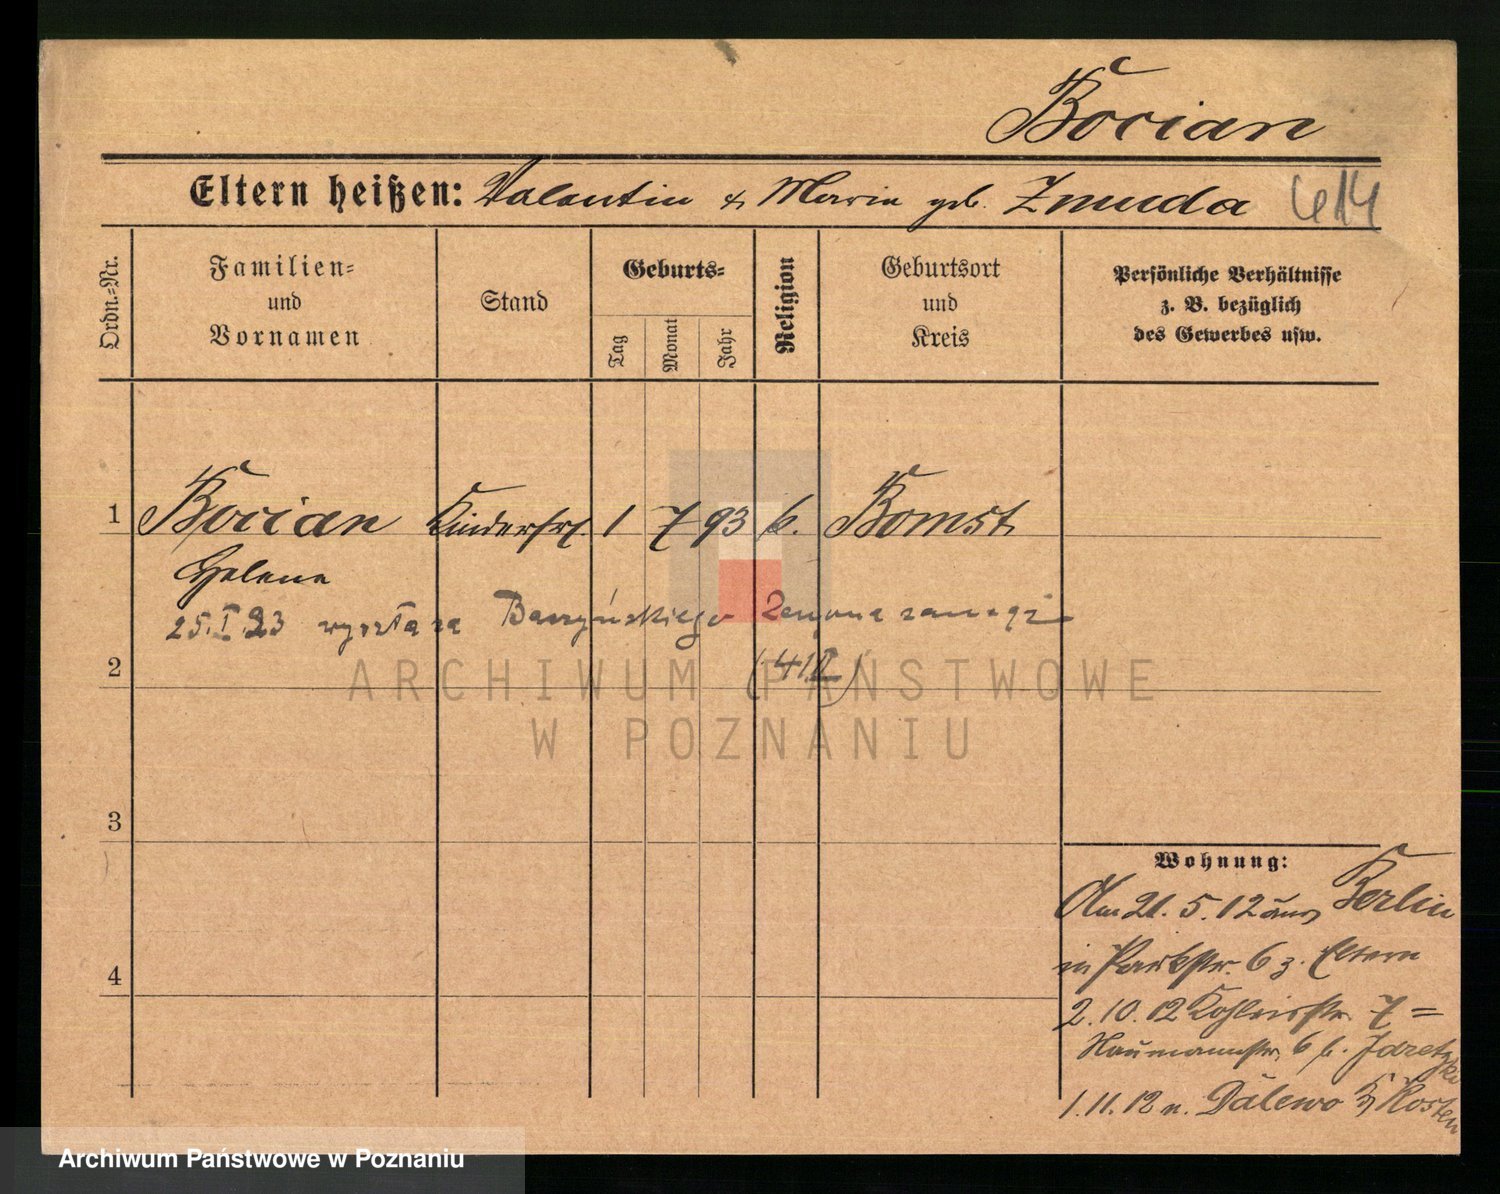 Bocian
Eltern heißen: Valentin & Marie geb. Zmuda 414
Ordn.-Nr.
Familien-
und
Vornamen
Stand
Geburts-
Tag
Monat
Jahr
Religion
Geburtsort
und
Kreis
Persönliche Verhältnisse
z. B. bezüglich
des Gewerbes usw.
1 Bocian Kinderfrl. 1 7 93 k. Bomst
Helena
25.I 23 wyszła za Baszyńskiego Zenona zamąż
2
3
4
Wohnung:
Am 21. 5. 12 aus Berlin
in Parkstr. 6 z. Eltern
2. 10. 12 7 =
Naumannstr. 6 b.
1. 11. 12 n. Dalewo Kr Kosten
ARCHIWUM PAŃSTWOWE
W POZNANIU
Archiwum Państwowe w Poznaniu